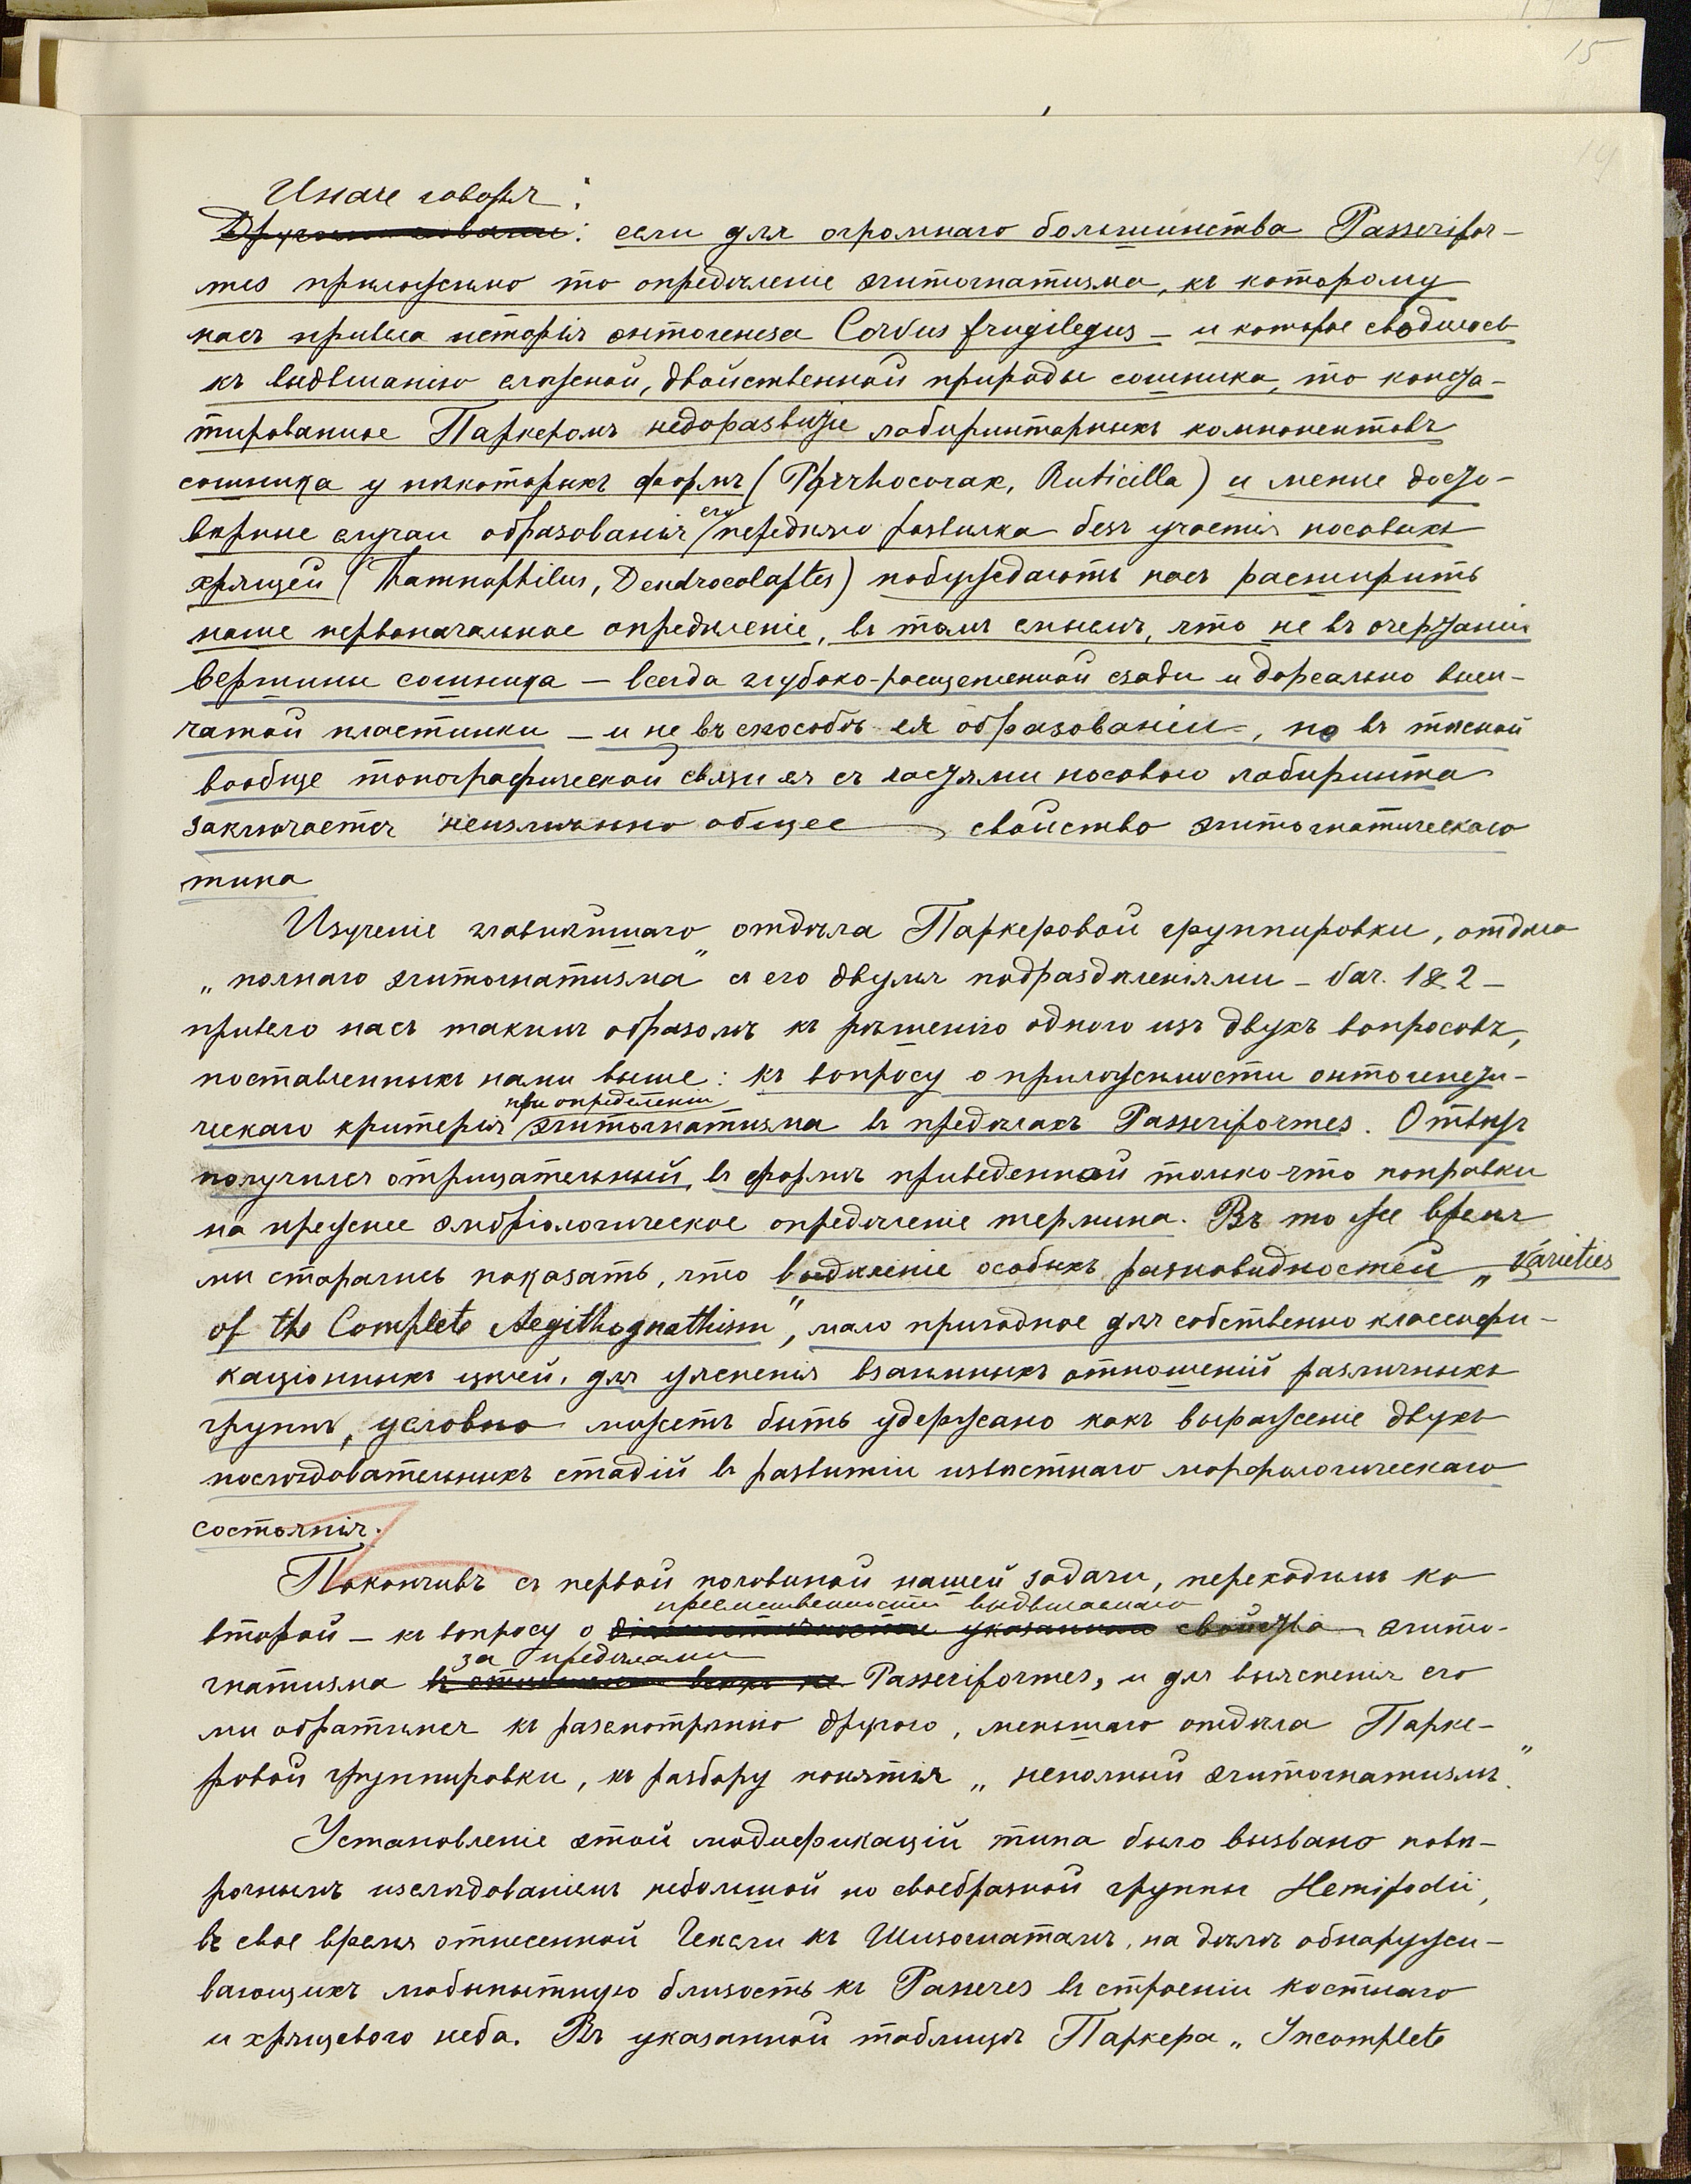 15
14
Иначе говоря:
Другими словами: если для огромнаго большинства Passerifor-
mes приложимо то опредѣленіе эгитогнатизма, къ которому
насъ привела исторія онтогенеза Corvus frugilegus — и которое сводилось
къ выдвиганію сложной, двойственной природы сошника, то конста-
тированное Паркеромъ недоразвитіе лабиринтарныхъ компонентовъ
сошника у нѣкоторыхъ формъ (Pyrrhocorax, Ruticilla) и менѣе досто-
вѣрные случаи образованія его передняго развилка безъ участія носовыхъ
хрящей (Thamnophilus, Dendrocolaptes) побуждаютъ насъ расширить
наше первоначальное опредѣленіе, въ томъ смыслѣ, что не въ очертаніи
вершины сошника — всегда глубоко-расщепленной сзади и дорсально выем-
чатой пластинки — и не въ способѣ ея образованія, но въ тѣсной
вообще топографической связи ея съ частями носового лабиринта
заключается неизмѣнно общее свойство эгитогнатическаго
типа
Изученіе главнѣйшаго отдѣла Паркеровой группировки, отдѣла
„полнаго эгитогнатизма" съ его двумя подраздѣленіями — Var. 1 & 2 —
привело насъ такимъ образомъ къ рѣшенію одного изъ двухъ вопросовъ,
поставленныхъ нами выше: къ вопросу о приложимости онтогенети-
ческаго критерія при опредѣленіи эгитогнатизма въ предѣлахъ Passeriformes. Отвѣтъ
получился отрицательный, въ формѣ приведенной только что поправки
на прежнее эмбріологическое опредѣленіе термина. Въ то же время
мы старались показать, что выдѣленіе особыхъ разновидностей „Varieties
of the Complete Aegithognathism", мало пригодное для собственно классифи-
каціонныхъ цѣлей, для уясненія взаимныхъ отношеній различныхъ
группъ, условно можетъ быть удержано какъ выраженіе двухъ
послѣдовательныхъ стадій въ развитіи извѣстнаго морфологическаго
состоянія.
Покончивъ съ первой половиной нашей задачи, переходимъ ко
второй — къ вопросу о преемственности выдвигаемаго свойства эгито-
гнатизма за предѣлами Passeriformes, и для выясненія его
мы обратимся къ разсмотрѣнію другого, меньшаго отдѣла Парке-
ровой группировки, къ разбору понятія „неполный эгитогнатизмъ".
Установленіе этой модификаціи типа было вызвано повѣ-
рочнымъ изслѣдованіемъ небольшой но своеобразной группы Hemipodii,
въ свое время отнесенной Гексли къ Шизогнатамъ, на дѣлѣ обнаружи-
вающихъ любопытную близость къ Passeres въ строеніи костнаго
и хрящевого неба. Въ указанной таблицѣ Паркера „Incomplete